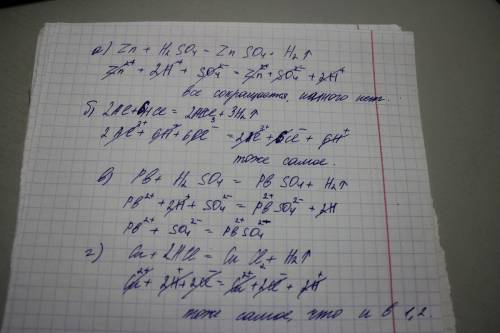 а) Zn + H₂SO₄ = ZnSO₄ + H₂↑
Zn²⁺ + 2H⁺ + SO₄²⁻ = Zn²⁺ + SO₄²⁻ + 2H⁺
все сокращается, ничего нет.
б) 2Al + 6HCl = 2AlCl₃ + 3H₂↑
2Al³⁺ + 6H⁺ + 6Cl⁻ = 2Al³⁺ + 6Cl⁻ + 6H⁺
тоже самое.
в) Pb + H₂SO₄ = PbSO₄ + H₂↑
Pb²⁺ + 2H⁺ + SO₄²⁻ = Pb²⁺SO₄²⁻ + 2H
Pb²⁺ + SO₄²⁻ = Pb²⁺SO₄²⁻
г) Cu + 2HCl = CuCl₂ + H₂↑
Cu²⁺ + 2H⁺ + 2Cl⁻ = Cu²⁺ + 2Cl⁻ + 2H⁺
тоже самое, что и в 1,2.